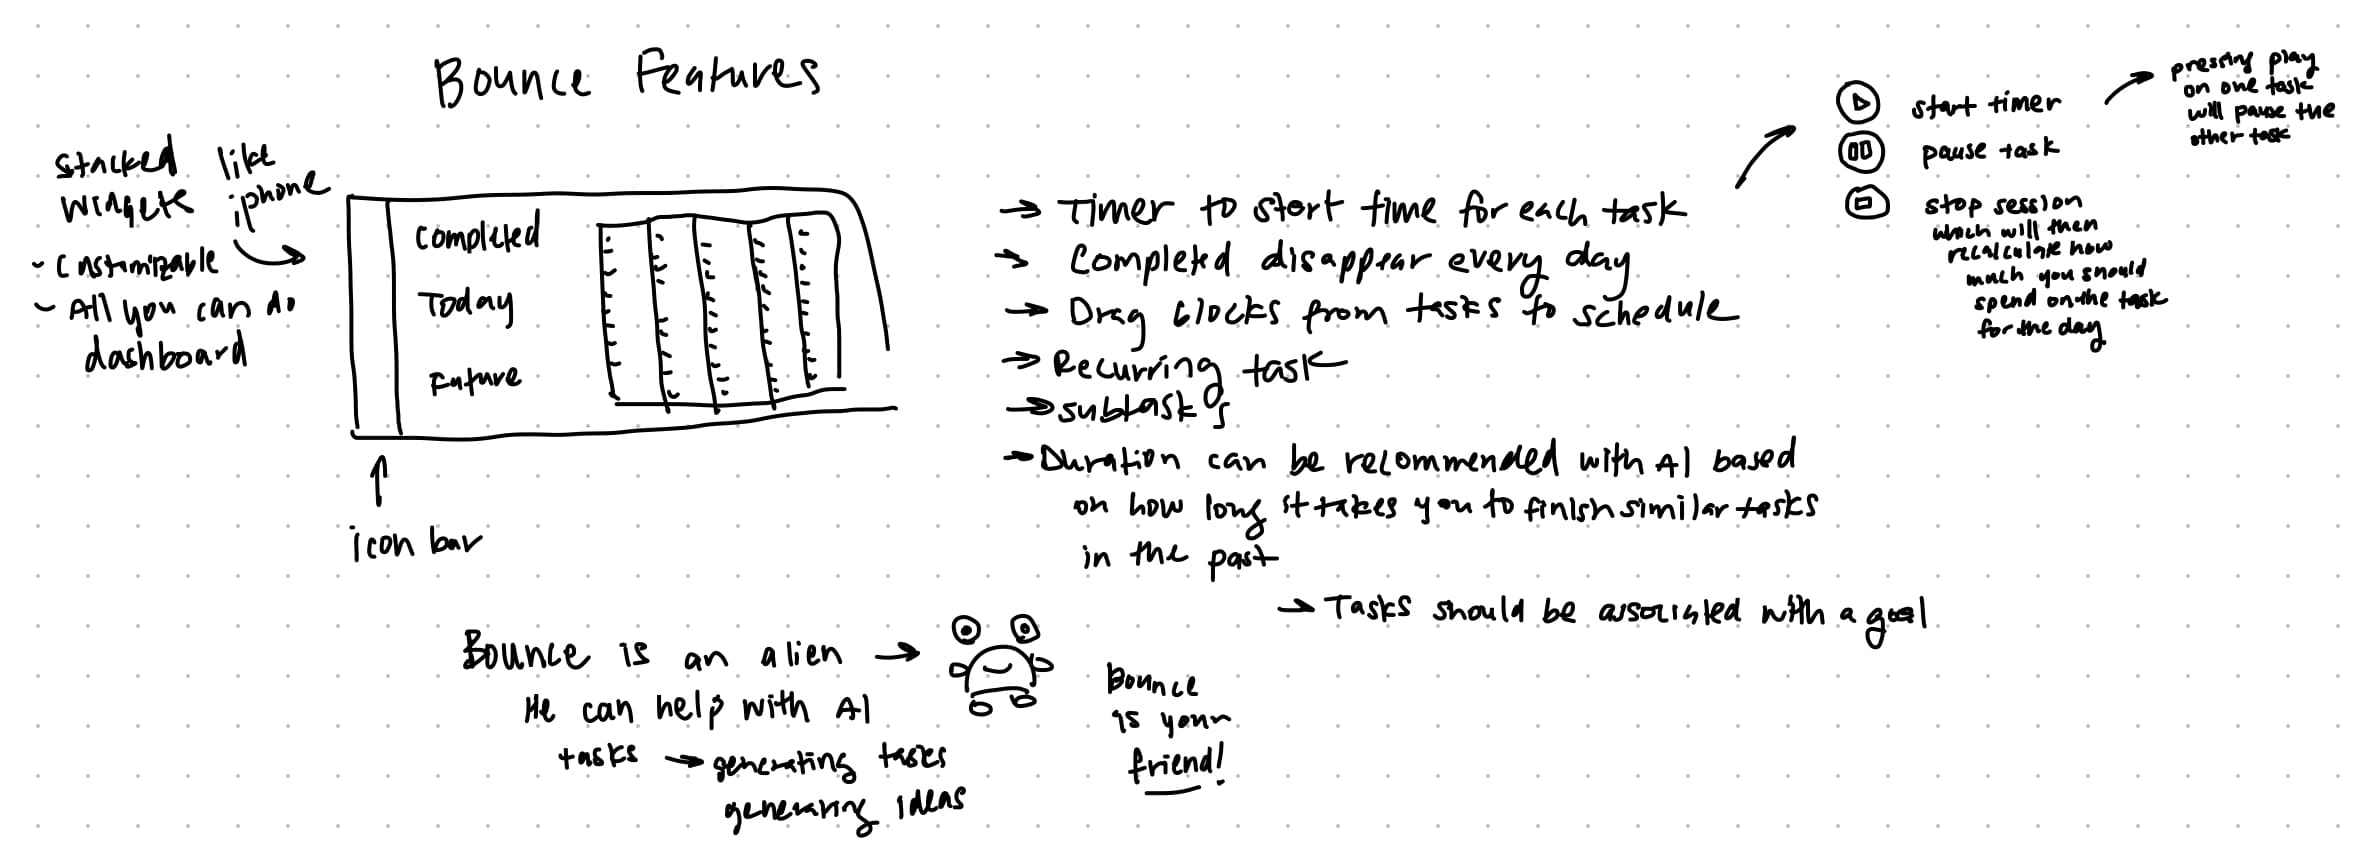 Bounce Features
stacked like
widgets iphone
- Customizable
- All you can do
dashboard
Completed
Today
Future
icon bar
→ Timer to start time for each task
→ Completed disappear every day
→ Drag blocks from tasks to schedule
→ Recurring task
→ subtasks
→ Duration can be recommended with AI based
on how long it takes you to finish similar tasks
in the past
→ Tasks should be associated with a goal
start timer
pause task
stop session
which will then
recalculate how
much you should
spend on the task
for the day
pressing play
on one task
will pause the
other task
Bounce is an alien →
He can help with AI
tasks → generating tasks
generating ideas
Bounce
is your
friend!